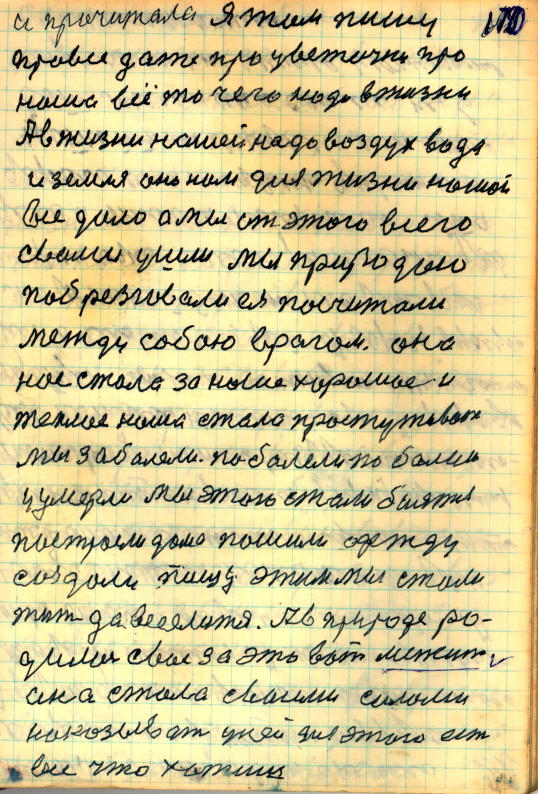 и прочитала Я там пишу 110
про все даже про цветочки про
наша всё то чего надо в жизни
А в жизни нашей надо воздух вода
и земля оно нам для жизни нашой
все дало а мы от этого всего
сваши ушли мы природою
побрезговали ея посчитали
между собою врагом. она
нас стала за наше хорошое и
теплое наша стала простуживат
мы забалели. поболели по болели
и умерли мы этого стали боятся
построели дома пошили одежду
создали пищу этим мы стали
жит да веселится. А в природе ро-
дилос свое за это вот межит
она стала своими силами
наказыват у ней для этого ест
все что хотиш